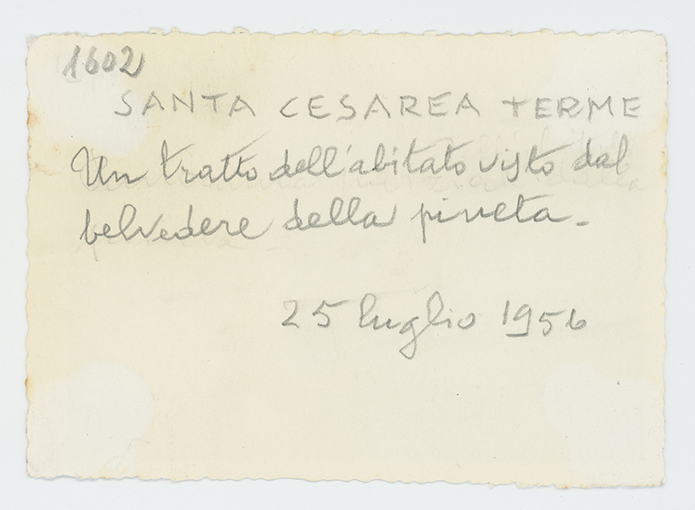 1602
SANTA CESAREA TERME
Un tratto dell'abitato visto dal
belvedere della pineta.
25 luglio 1956